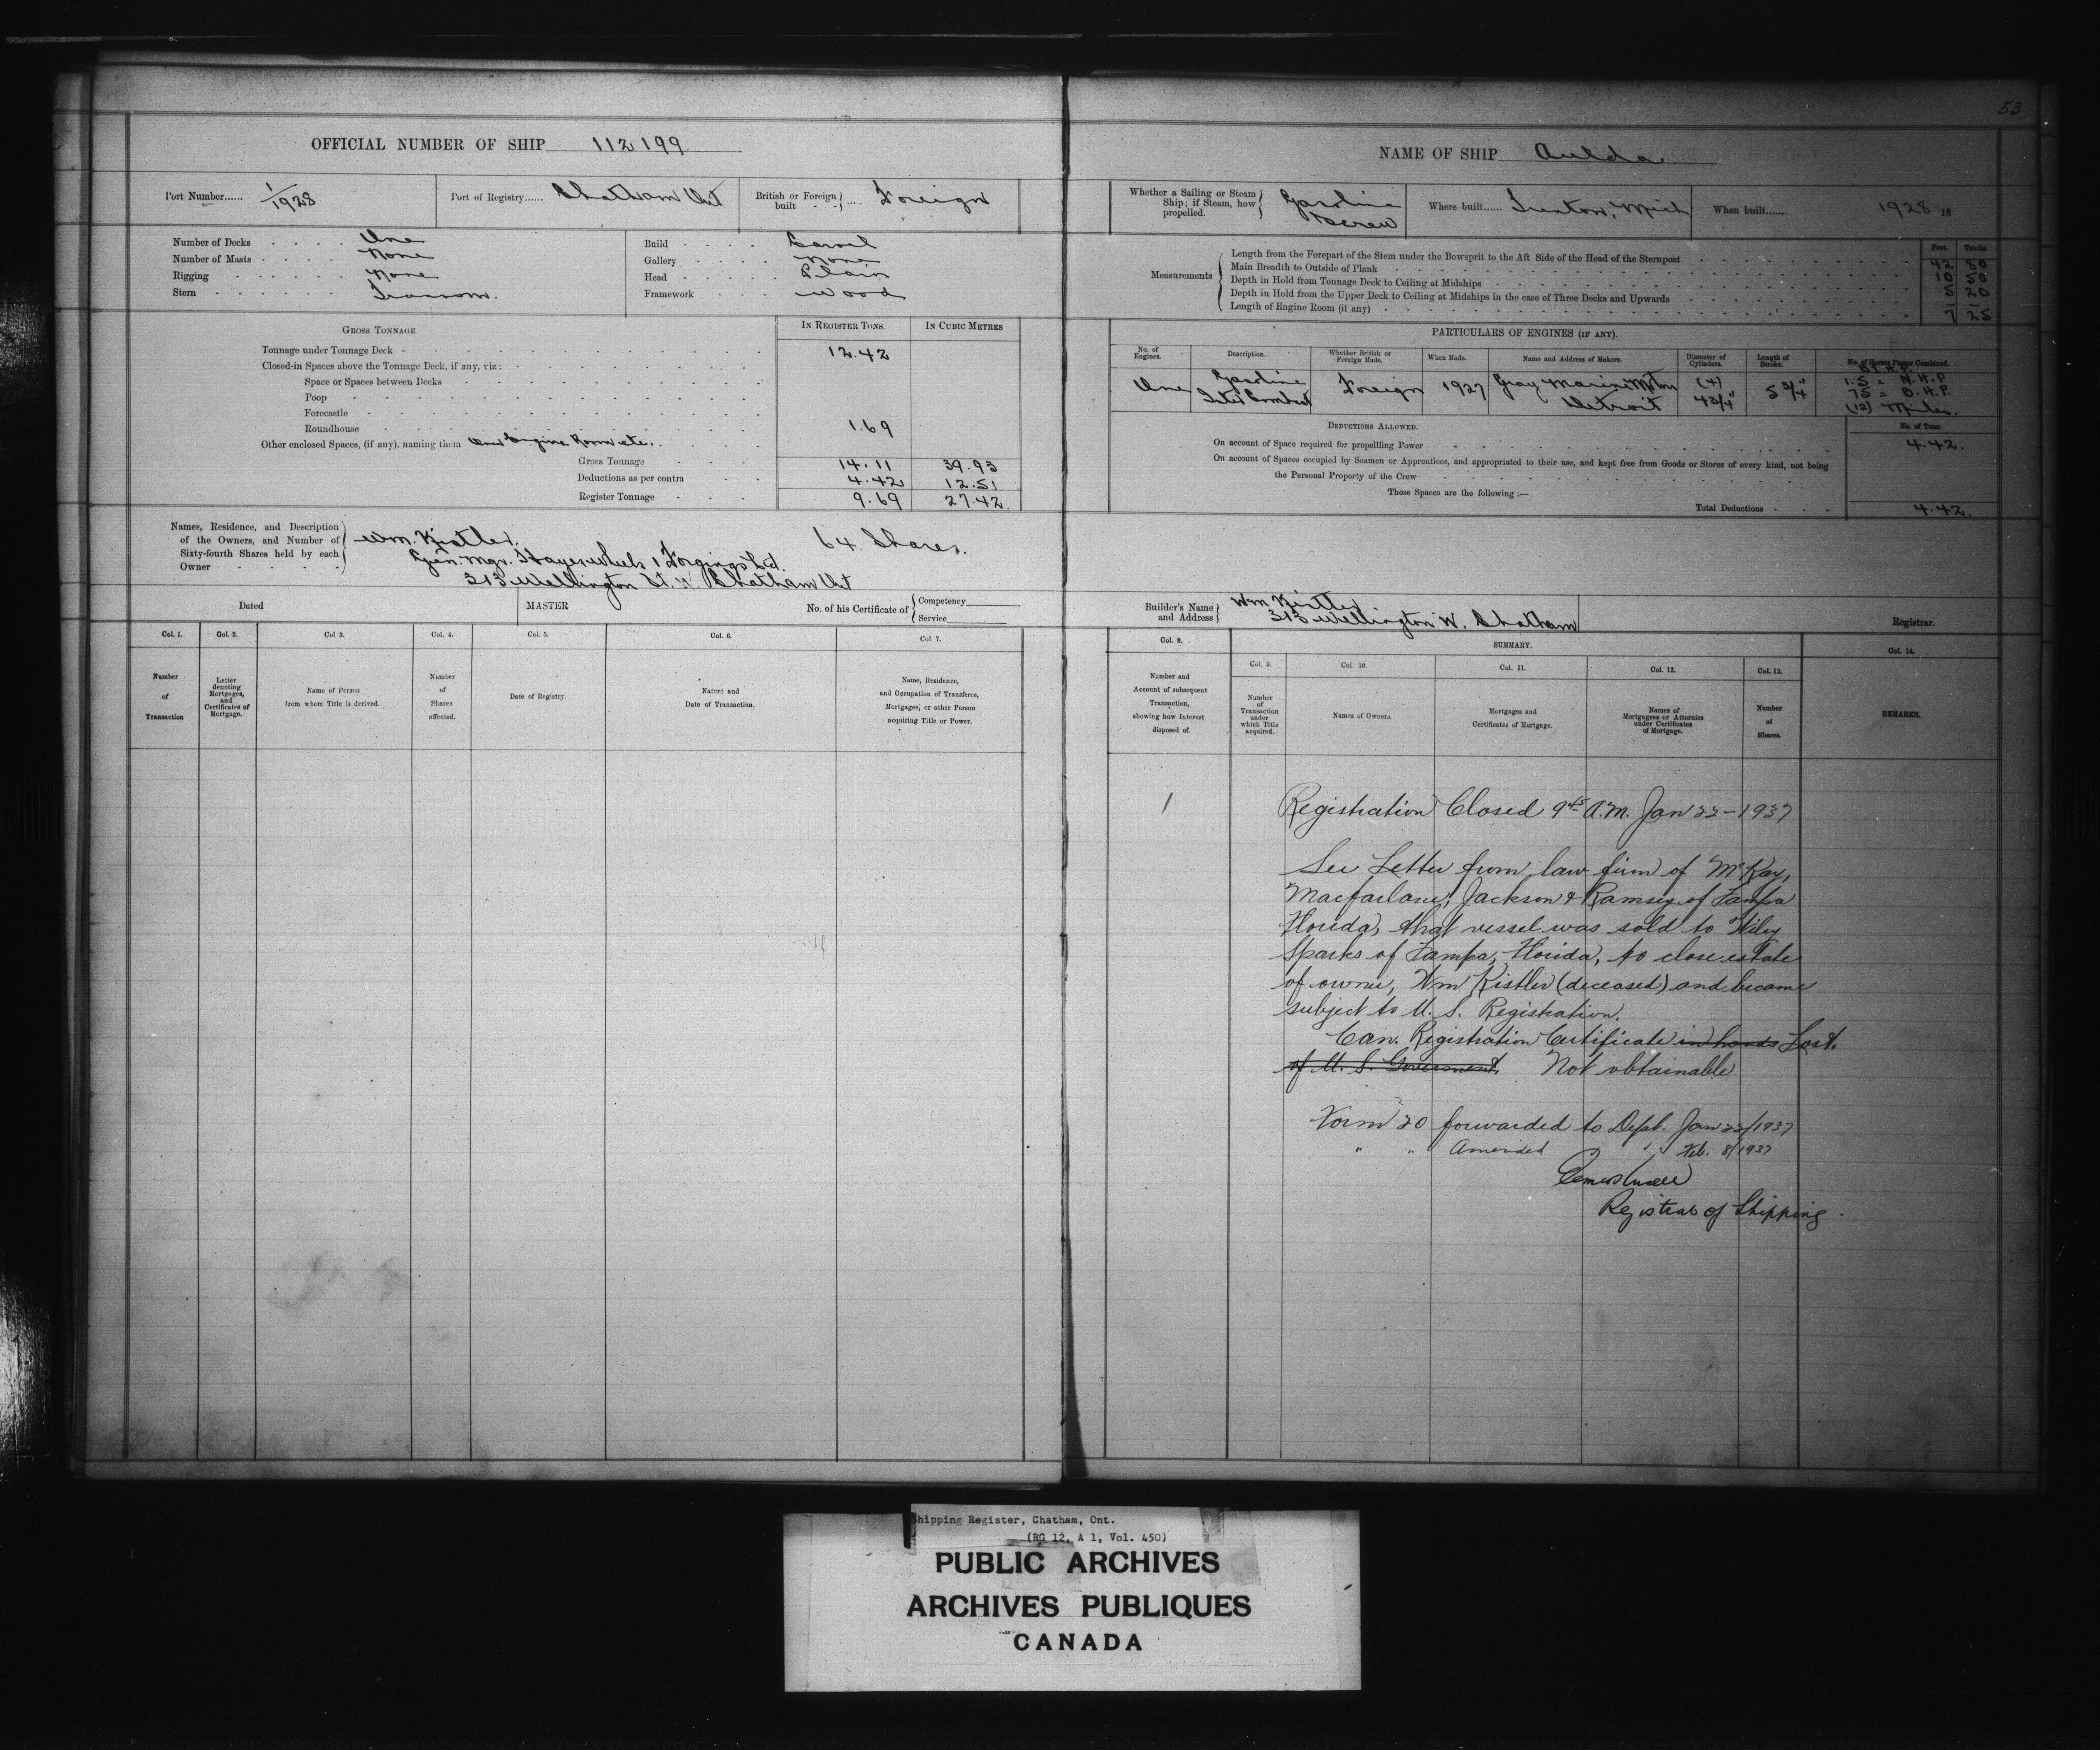 53
OFFICIAL NUMBER OF SHIP 112199
Port Number...... 1/1928
Port of Registry...... Chatham Ont
British or Foreign built .... Foreign
Number of Decks One
Number of Masts None
Rigging None
Stern Transom.
Build Carvel
Gallery None
Head Plain
Framework Wood
GROSS TONNAGE.
IN REGISTER TONS.
IN CUBIC METRES
Tonnage under Tonnage Deck 12.42
Closed-in Spaces above the Tonnage Deck, if any, viz:
Space or Spaces between Decks
Poop
Forecastle
Roundhouse 1.69
Other enclosed Spaces, (if any), naming them Over Engine Room etc.
Gross Tonnage 14.11 39.93
Deductions as per contra 4.42 12.51
Register Tonnage 9.69 27.42
Names, Residence, and Description
of the Owners, and Number of
Sixty-fourth Shares held by each
Owner
Wm. Kistler. 64 Shares.
Gen. Mgr. Hayes Wheels & Forgings Ltd.
313 Wellington St. W. Chatham Ont
Dated
MASTER
No. of his Certificate of
Competency
Service
Col. 1.
Col. 2.
Col 3.
Col. 4.
Col. 5.
Col. 6.
Col 7.
Number
of
Transaction
Letter
denoting
Mortgages,
and
Certificates of
Mortgage.
Name of Person
from whom Title is derived.
Number
of
Shares
affected.
Date of Registry.
Nature and
Date of Transaction.
Name, Residence,
and Occupation of Transferee,
Mortgagee, or other Person
acquiring Title or Power.
NAME OF SHIP Aulda
Whether a Sailing or Steam
Ship; if Steam, how
propelled.
Gasoline
Screw
Where built...... Trenton, Mich
When built...... 1928 18
Measurements
Feet. Tenths.
Length from the Forepart of the Stem under the Bowsprit to the Aft Side of the Head of the Sternpost 42 80
Main Breadth to Outside of Plank 10 50
Depth in Hold from Tonnage Deck to Ceiling at Midships 5 20
Depth in Hold from the Upper Deck to Ceiling at Midships in the case of Three Decks and Upwards - -
Length of Engine Room (if any) 7 25
PARTICULARS OF ENGINES (IF ANY).
No. of
Engines.
Description.
Whether British or
Foreign Made.
When Made.
Name and Address of Makers.
Diameter of
Cylinders.
Length of
Stroke.
No. of Horse Power Combined.
One
Gasoline
Inter Combust
Foreign
1927
Gray Marine Motor
Detroit
(4)
4 3/4"
5 3/4"
1.5 = N.H.P
75 = B.H.P.
(12) Miles.
DEDUCTIONS ALLOWED.
No. of Tons.
On account of Space required for propelling Power 4.42.
On account of Spaces occupied by Seamen or Apprentices, and appropriated to their use, and kept free from Goods or Stores of every kind, not being
the Personal Property of the Crew
These Spaces are the following :—
Total Deductions 4.42.
Builder's Name
and Address
Wm Kistler
313 Wellington W. Chatham
Registrar.
Col. 8.
SUMMARY.
Col. 14.
Col. 9.
Col. 10.
Col. 11.
Col. 12.
Col. 13.
Number and
Account of subsequent
Transaction,
showing how Interest
disposed of.
Number
of
Transaction
under
which Title
acquired.
Names of Owners.
Mortgages and
Certificates of Mortgage.
Names of
Mortgagees or Attornies
under Certificates
of Mortgage.
Number
of
Shares.
REMARKS.
1
Registration Closed 9 45 A.M. Jan 22-1937
See Letter from law firm of McKay,
Macfarlane, Jackson & Ramsey of Tampa
Florida, that vessel was sold to Wiley
Sparks of Tampa, Florida, to close estate
of owner, Wm Kistler (deceased) and became
subject to U. S. Registration.
Can. Registration Certificate in hands Lost.
of U. S. Government. Not obtainable
Form 20 forwarded to Dept. Jan 22/1937
" " Amended " " Feb. 8/1937
Registrar of Shipping.
Shipping Register, Chatham, Ont.
(RG 12, A 1, Vol. 450)
PUBLIC ARCHIVES
ARCHIVES PUBLIQUES
CANADA